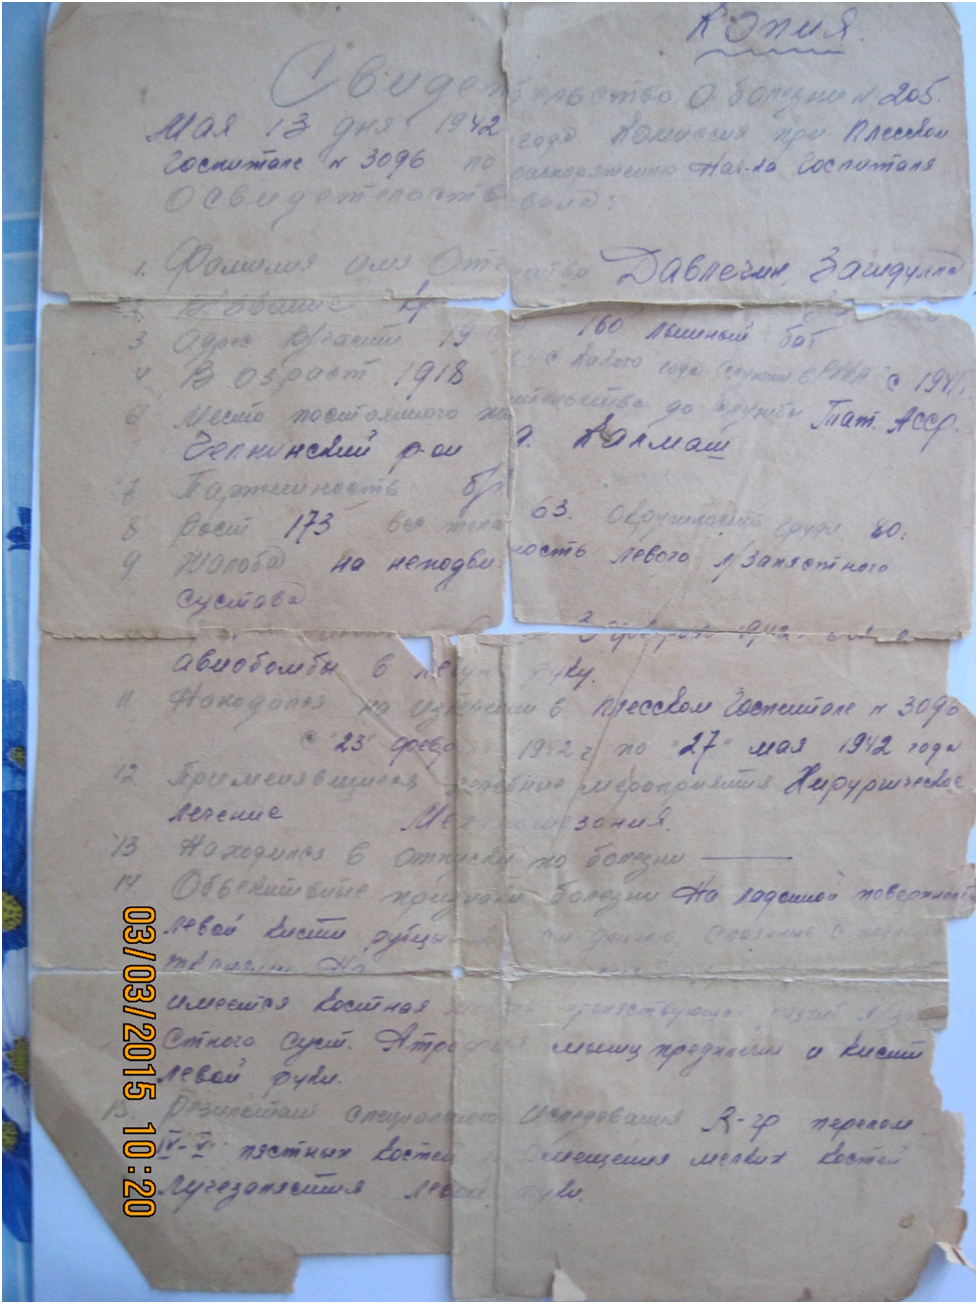 Копия.
Свидетельство о болезни N 205.
Мая 13 дня 1942 года Комиссия при Плесском
Госпитале N 3096 по распоряжению Нач-ка Госпиталя
Освидетельствовала:
1. Фамилия имя Отчество Давлечин Загидулла
2 Звание кр
3 Адрес части 19 160 лыжный бат
4 Возраст 1918 с какого года служит в РККА с 1941
6 Место постоянного жительства до службы Тат. Асср.
Челнинский р-он д. Калмаш
7 Партийность б/п
8 Рост 173 вес тела 63. Окружность груди 80.
9 Жалоба на неподвижность левого л/запястного
сустава
авиобомбы в левую руку.
11 Находился на излечении в Плесском Госпитале N 3096
с "23" февраля 1942 г по "27" мая 1942 года
12 Применявшиеся лечебные мероприятия Хирургическое
лечение
13 Находился в отпуске по болезни —
14 Объективные признаки болезни На ладонной поверхности
левой кисти рубцы спаяные с
На
имеется костная препятствующая
стного суст. Атрофия мышц предплечия и кисти
левой руки.
15. Результат специального исследования R-гр перелом
IV-V пястных костей смещения мелких костей
лучезапястия левой руки.
03/03/2015 10:20